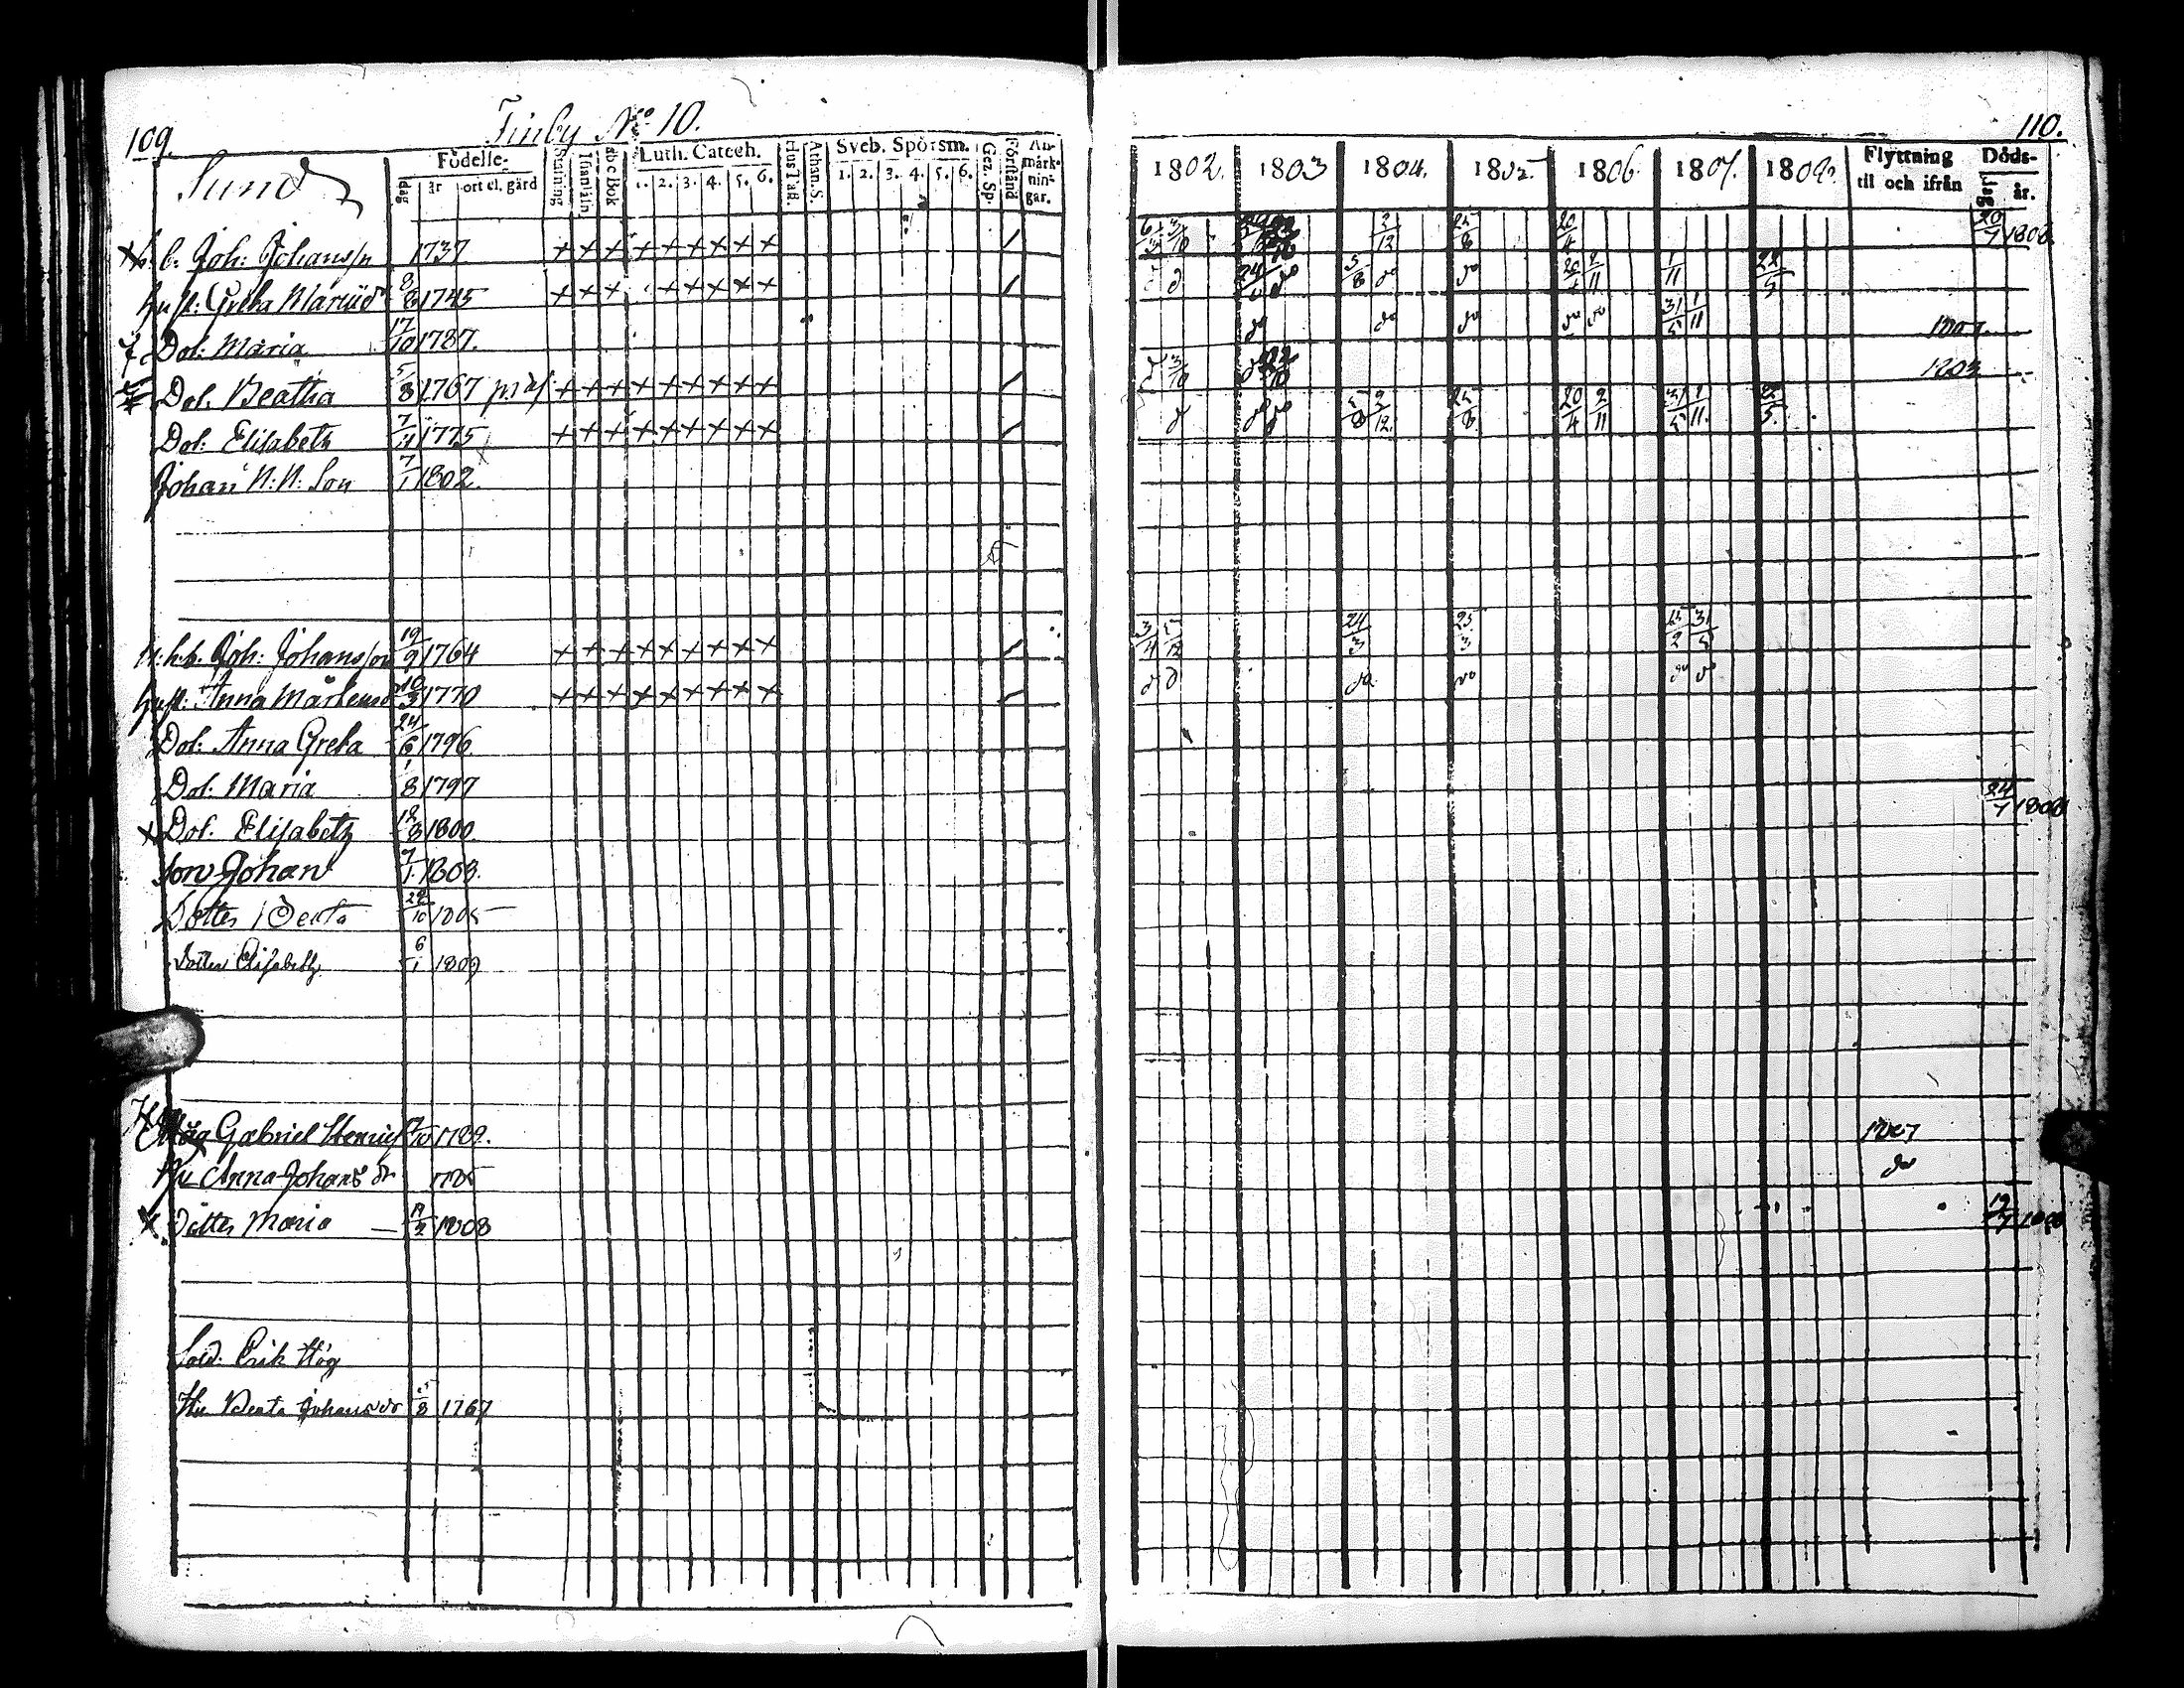 109.
Finby No 10.
Sund
Födelse-
dag år ort el. gård
Stafning
Innanläsn
abc Bok
Luth. Catech.
1. 2. 3. 4. 5. 6.
Hust. Taf.
Athan. S.
Sveb. Spörsm.
1. 2. 3. 4. 5. 6.
Gez. Sp.
Förstånd
An-
märk-
nin-
gar.
b. Joh: Johansn 1737 + + + + + + + + +
Hust: Greta Matsd 8/8 1745 + + + + + + + +
Dot: Maria 17/10 1787.
Dot: Beatha 5/8 1767 + + + + + + + + +
Dot: Elisabeth 7/11 1775 + + + + + + + + +
Johan N: N: Son 7/1 1802.
h.b. Joh: Johansson 19/9 1764 + + + + + + + + +
Hust: Anna Mårtensd 10/3 1770 + + + + + + + + +
Dot: Anna Greta 24/6 1796
Dot: Maria 1/8 1797
+ Dot: Elisabeth 12/8 1800
Son Johan 7/1 1803.
Dotter Beata 22/10 1805
Dotter Elisabeth 6/1 1809
Måg Gabriel 1782.
Hu Anna Johans dr 1785
+ Dotter Maria 19/2 1808
Sold: Erik Hög
Hu Beata Johansdr 5/8 1767
110.
1802. 1803 1804. 1805. 1806. 1807. 1808.
Flyttning
til och ifrån
Döds-
dag år.
3/10 2/12 25/8 20/4 20/7 1808
d d 24 do 5/8 do do 20/4 2/11 1/11 22/5
do do do do do 31/5 1/11 1807
d 3/10 1803
d do do 5/8 2/12 25/8 20/4 2/11 31/5 1/11 22/5
3/4 5/12 24/3 25/3 15/2 31/5
d d do do do do
24/7 1808
1807
do
19/7 1808